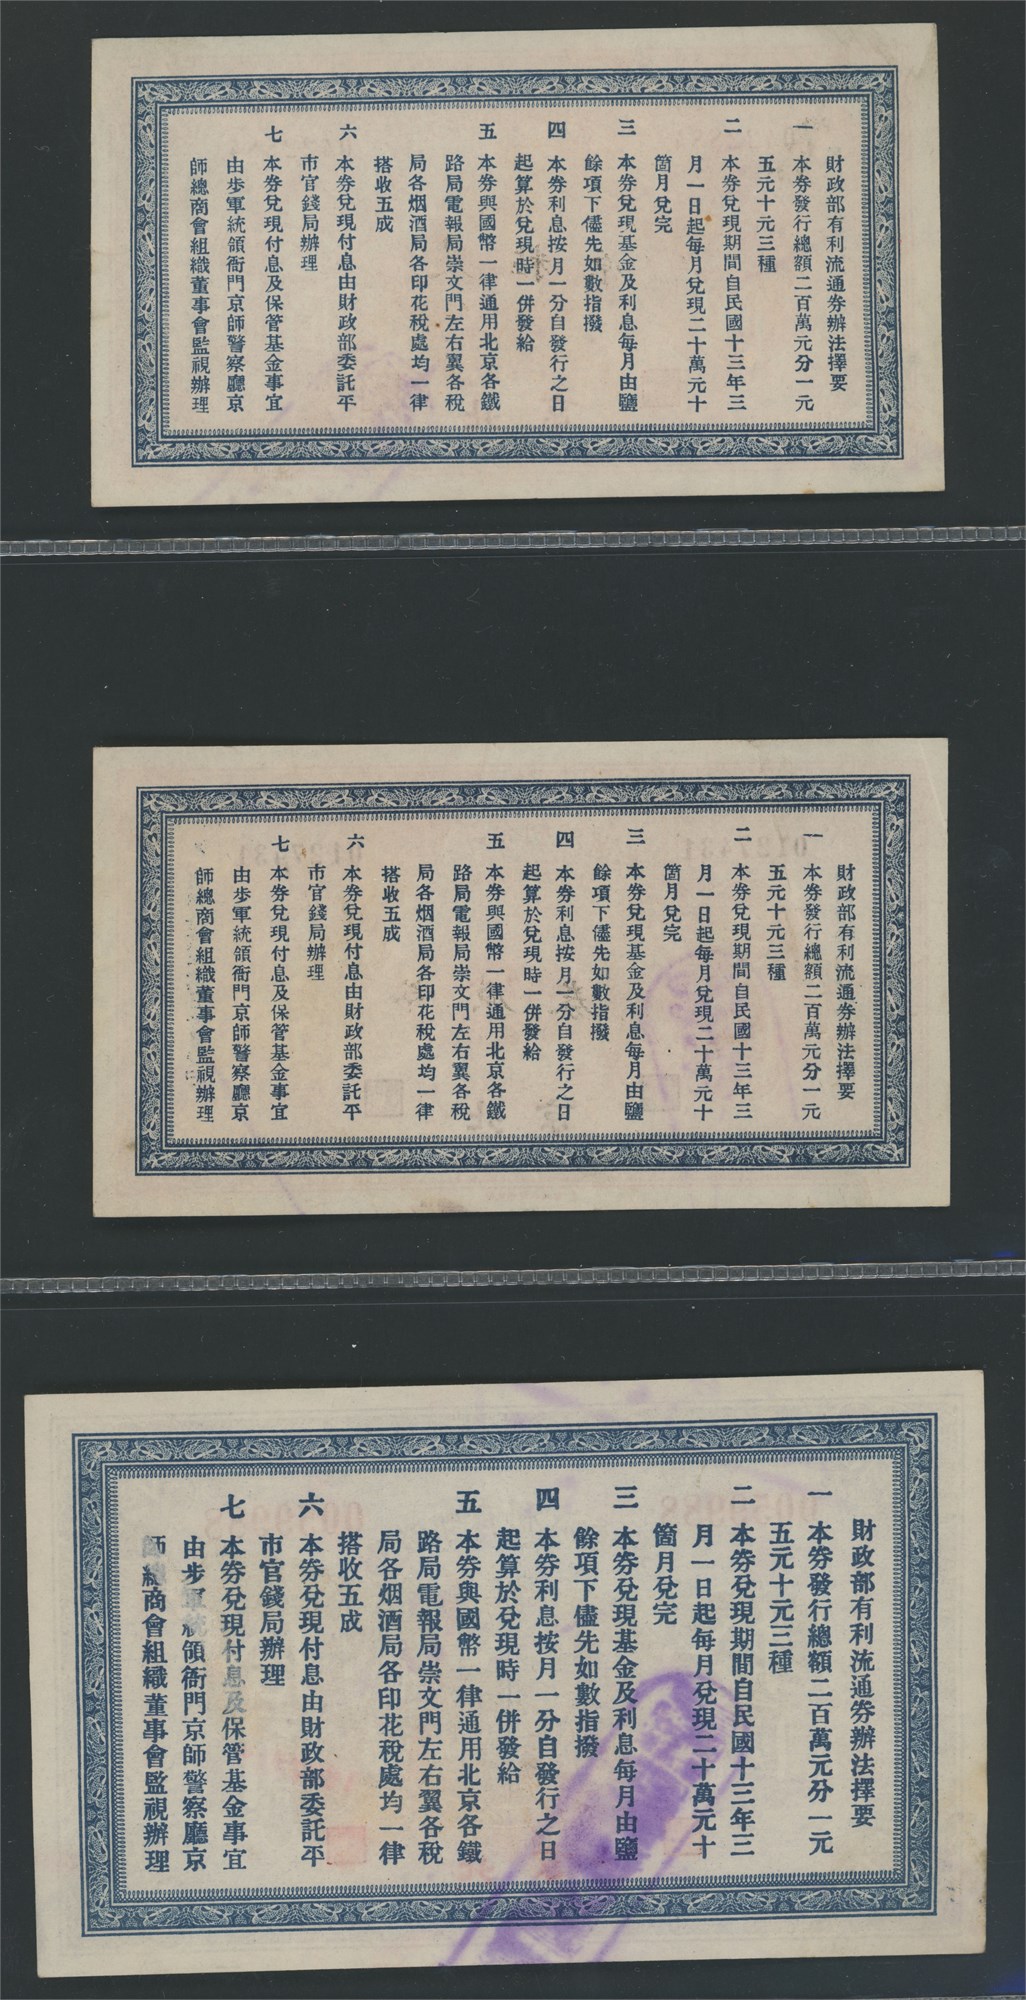 財政部有利流通券辦法擇要
一 本券發行總額二百萬元分一元
五元十元三種
二 本券兌現期間自民國十三年三
月一日起每月兌現二十萬元十
箇月兌完
三 本券兌現基金及利息每月由鹽
餘項下儘先如數指撥
四 本券利息按月一分自發行之日
起算於兌現時一併發給
五 本券與國幣一律通用北京各鐵
路局電報局崇文門左右翼各稅
局各烟酒局各印花稅處均一律
搭收五成
六 本券兌現付息由財政部委託平
市官錢局辦理
七 本券兌現付息及保管基金事宜
由步軍統領衙門京師警察廳京
師總商會組織董事會監視辦理
財政部有利流通券辦法擇要
一 本券發行總額二百萬元分一元
五元十元三種
二 本券兌現期間自民國十三年三
月一日起每月兌現二十萬元十
箇月兌完
三 本券兌現基金及利息每月由鹽
餘項下儘先如數指撥
四 本券利息按月一分自發行之日
起算於兌現時一併發給
五 本券與國幣一律通用北京各鐵
路局電報局崇文門左右翼各稅
局各烟酒局各印花稅處均一律
搭收五成
六 本券兌現付息由財政部委託平
市官錢局辦理
七 本券兌現付息及保管基金事宜
由步軍統領衙門京師警察廳京
師總商會組織董事會監視辦理
財政部有利流通券辦法擇要
一 本券發行總額二百萬元分一元
五元十元三種
二 本券兌現期間自民國十三年三
月一日起每月兌現二十萬元十
箇月兌完
三 本券兌現基金及利息每月由鹽
餘項下儘先如數指撥
四 本券利息按月一分自發行之日
起算於兌現時一併發給
五 本券與國幣一律通用北京各鐵
路局電報局崇文門左右翼各稅
局各烟酒局各印花稅處均一律
搭收五成
六 本券兌現付息由財政部委託平
市官錢局辦理
七 本券兌現付息及保管基金事宜
由步軍統領衙門京師警察廳京
師總商會組織董事會監視辦理